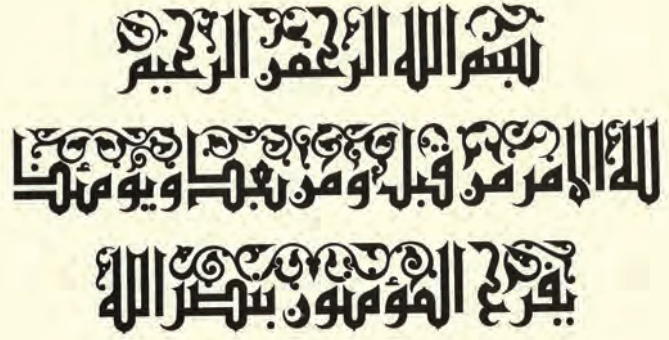 بسم الله الرحمن الرحيم
لله الامر من قبل ومن بعد ويومئذ
يفرح المؤمنون بنصر الله